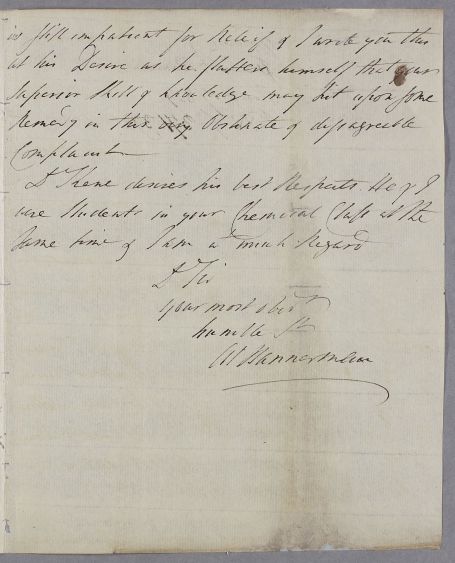 is still impatient for Relief & I write you this
at his Desire as he flatters himself that your
Superior Skill & Knowledge may hit upon some
Remedy in this very Obstinate & disagreeable
Complaint
Dr Skene desires his best Respects. He & I
were Students in your Chemical Class at the
Same time & I am wt much Regard
Dr Sir
your most obedt
humble Sert
Al Bannerman